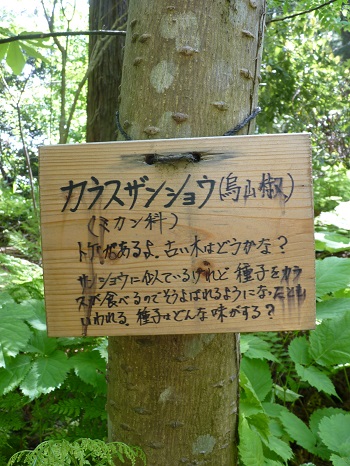 カラスザンショウ(烏山椒)
(ミカン科)
トゲがあるよ。古い木はどうかな?
サンショウに似ているけれど種子をカラ
スが食べるのでそうよばれるようになったとも
いわれる。種子はどんな味がする?